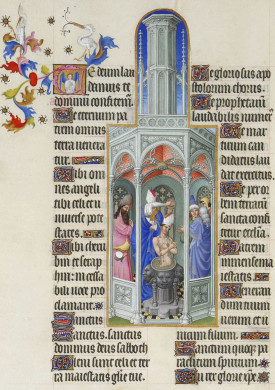 Te deum lau
damus te
dominum confitemur.
Te eternum pa
trem omnis
terra venera
tur.
Tibi om
nes angeli
tibi celi et u
niverse pote
states.
Tibi cheru
bin et sera
phin: in cessa
bili voce pro
clamant.
Sanctus
Sanctus. sanctus
dominus deus sabaoth
Pleni sunt celi et ter
ra maiestatis glorie tue.
Te gloriosus ap
postolorum chorus.
Te prophetarum
laudabilis numerus
Te martirum can
didatus lau
dat exercitus.
Te per or
bem terrarum
sancta confi
tetur ecclesia.
Patrem in
mense ma
iestatis.
Veneran
dum tuum
verum et u
nicum filium.
Sanctum quoque pa
raclitum spiritum.
Tu rex glorie xpe.